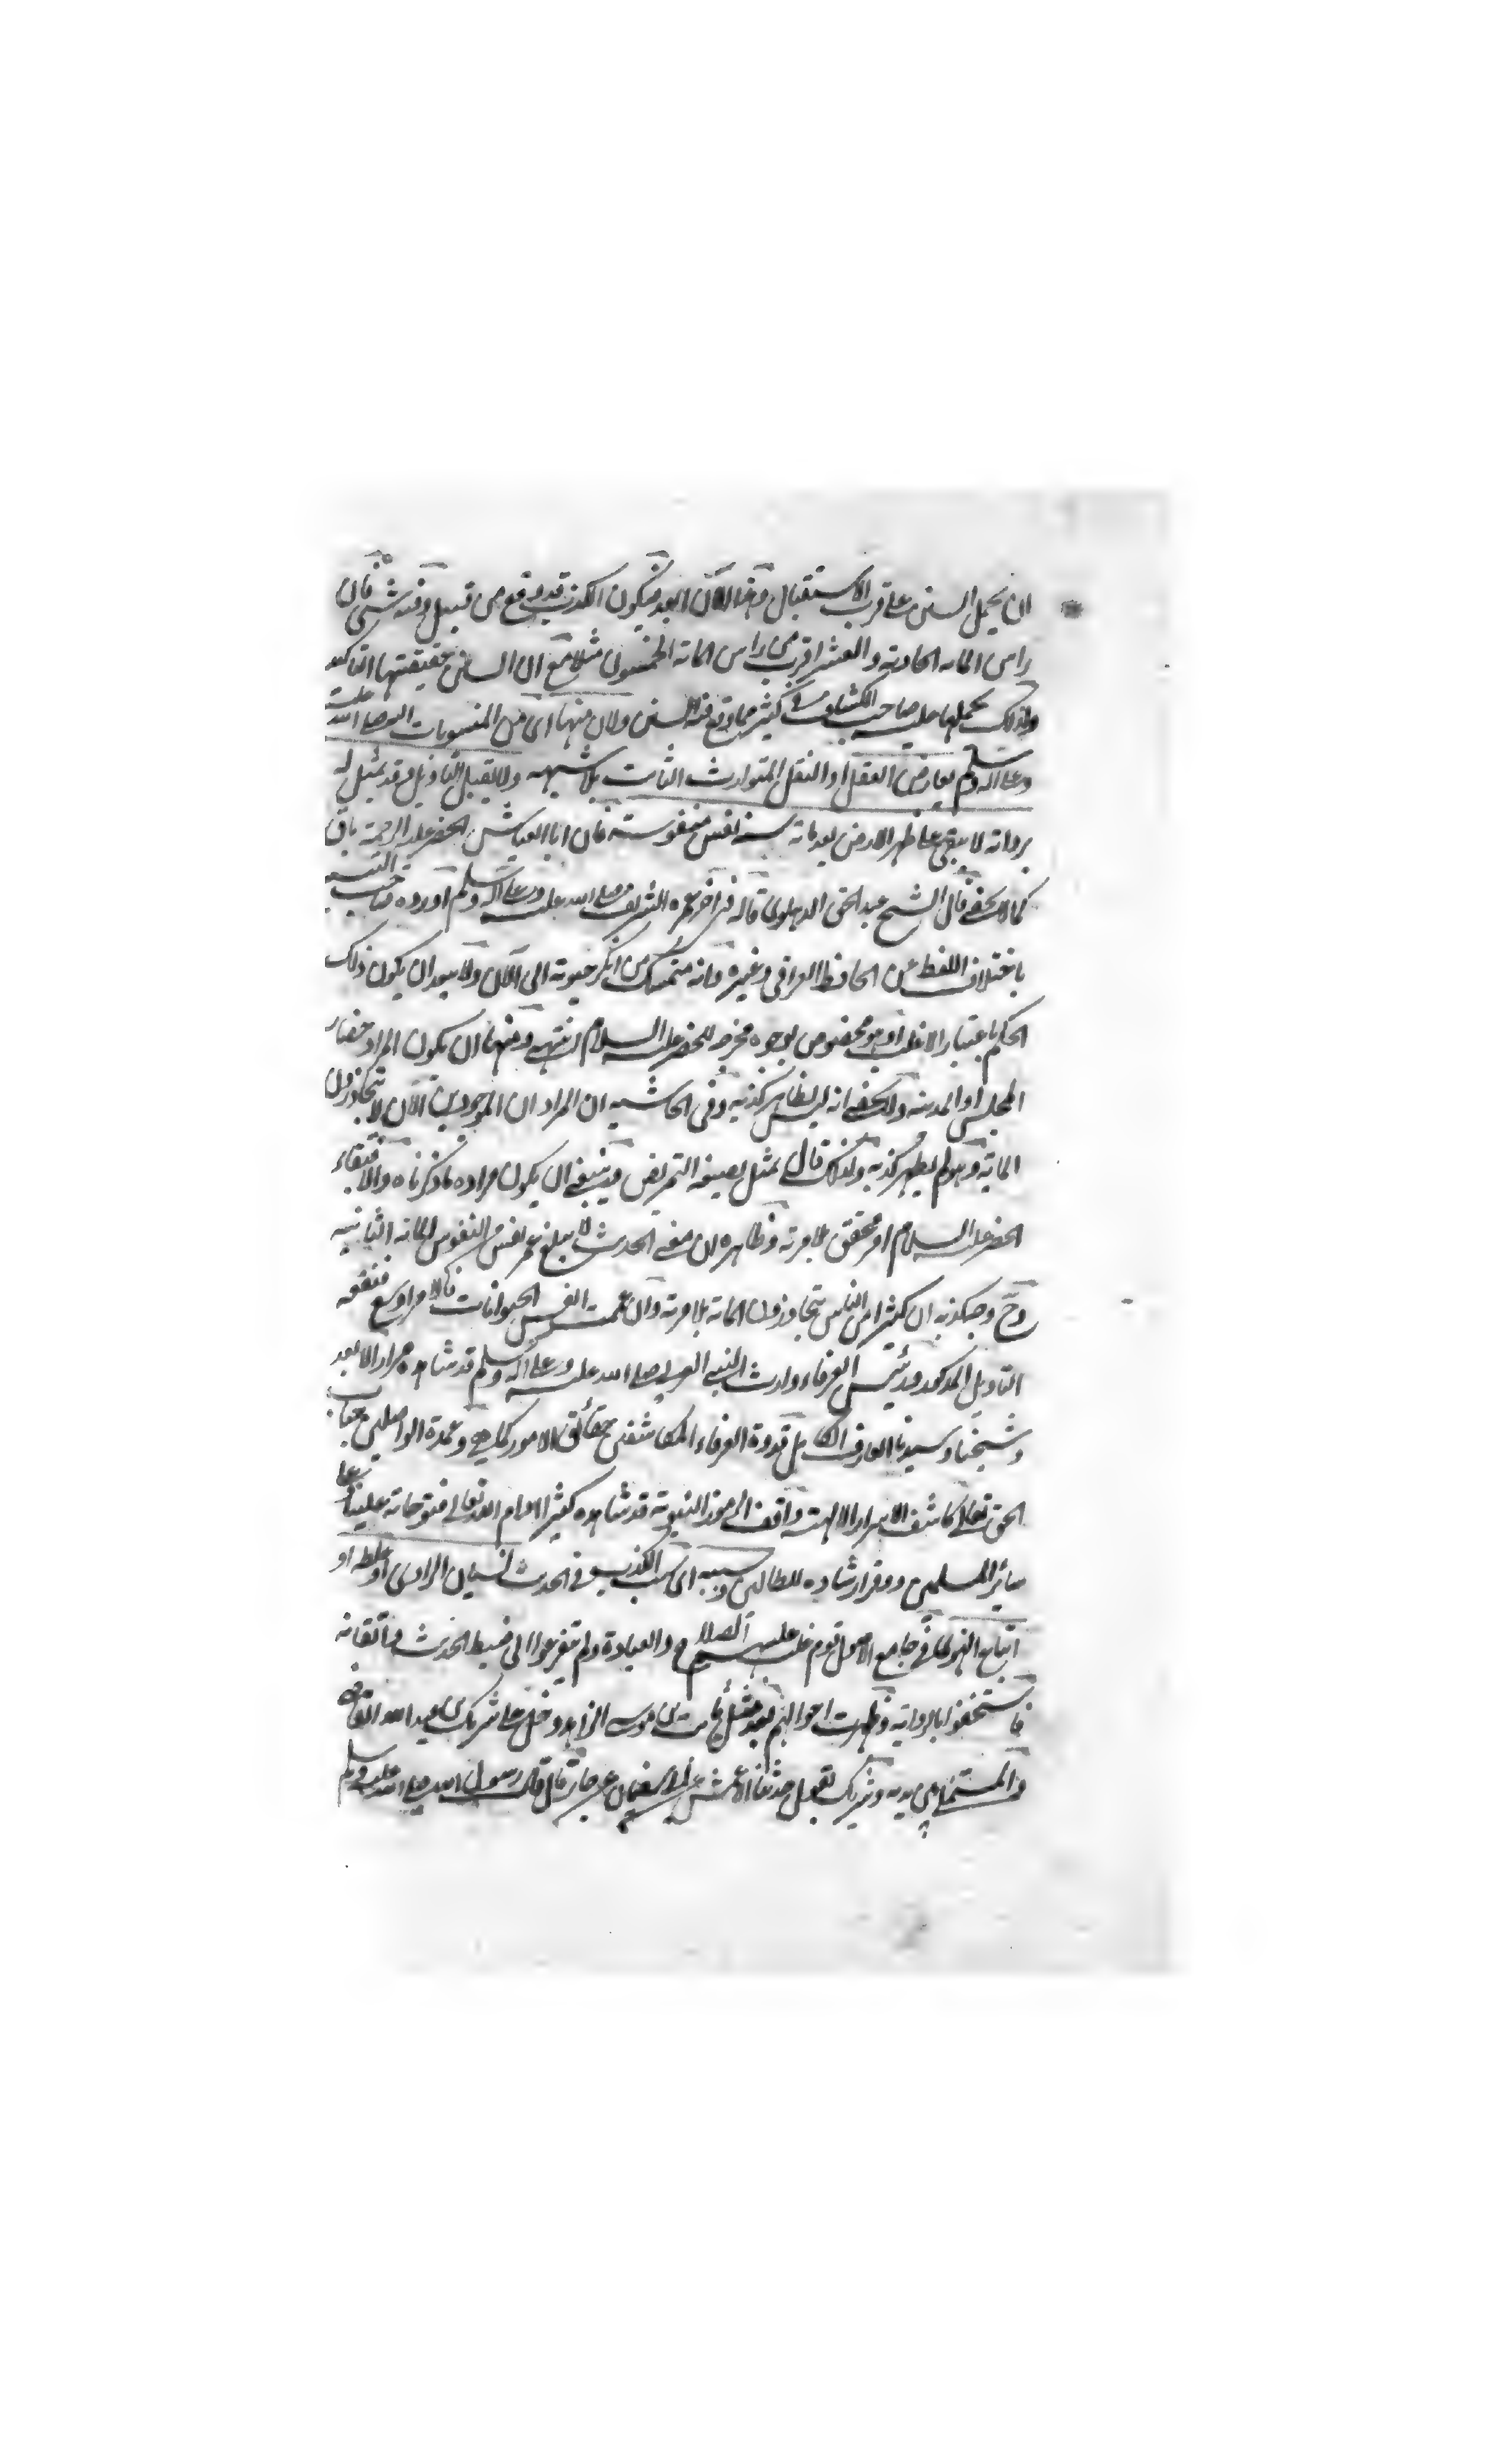 ان يحمل السين على قرب الاستقبال وهذا الآن ابعد فيكون الكذب قد وقع من قبل وفيه شئ فان
راس المائة الحادية والعشر اقرب من راس المائة الخمسون مثلا مع ان السين حقيقتها التاكيد
ولذلك يحملها عليه صاحب الكشاف في كثير مما وقع فيه السين ولان منها اى من المنسوبات اليه صلى الله عليه
وعلى اله وسلم يعارض العقل او النقل المتوارث الثابت بلا شبهة ولا يقبل التاويل وقد يمثل له
برواية لا يبقى على ظهر الارض بعد مائة سنة نفس منفوسة فان ابا العباس الخضر عليه الرحمة باق
كما لا يخفى قال الشيخ عبد الحق الدهلوى قاله فى اخر عمره الشريف صلى الله عليه وعلى اله وسلم اورده صاحب
باختلاف اللفظ عن الحافظ العراقى وغيره وانه متمسك من انكر حيوته الى الآن ولا يبعد ان يكون ذلك
الحكم باعتبار الاغلب او هو مخصوص بوجوه مخرجه للخضر عليه السلام انتهى ومنها ان يكون المراد حضار
المجلس او المدينة ولا يخفى انه ليس بظاهر كذبه وفى الحاشية ان المراد ان الموجودين الآن لا يتجاوزون
المائة وهو لم يظهر كذبه ولذلك قال يمثل بصيغة التمريض وينبغى ان يكون مراده ما ذكرناه والا فبقاء
الخضر عليه السلام امر محقق بلا مرية وظاهره ان معنى الحديث لا يبلغ عمر نفس من النفوس المائة الثانية
وح وجه كذبه ان كثيرا من الناس يتجاوزون المائة بلا مرية وان عممت النفس الحيوانات فالامر اوسع
التاويل المذكور ورئيس العرفاء وارث النبى العربى صلى الله عليه وعلى اله وسلم قد شاهده مرارا لا بعد
وشيخنا وسيدنا العارف الكامل قدوة العرفاء المكاشفين بحقائق الامور كما هى وعمدة الواصلين بجناب
الحق تعالى كاشف الاسرار الالهية واقف الرموز النبوية قد شاهده كثيرا ادام الله تعالى فتوحاته علينا وعلى
سائر المسلمين ووفر ارشاده للطالبين وسببه اى سبب الكذب فى الحديث نسيان الراوى او غلطه او
اتباع الهوى كما فى جامع الاصول قوم غلب عليهم الصلاح والعبادة ولم يتفرغوا الى ضبط الحديث واتقانه
فاستخفوا بالرواية وظهرت احوالهم مثل ثابت بن موسى الزاهد دخل على شريك بن عبد الله القاضى
والمستملى بين يديه وشريك يقول حدثنا الاعمش عن ابى سفيان عن جابر قال قال رسول الله صلى الله عليه وسلم